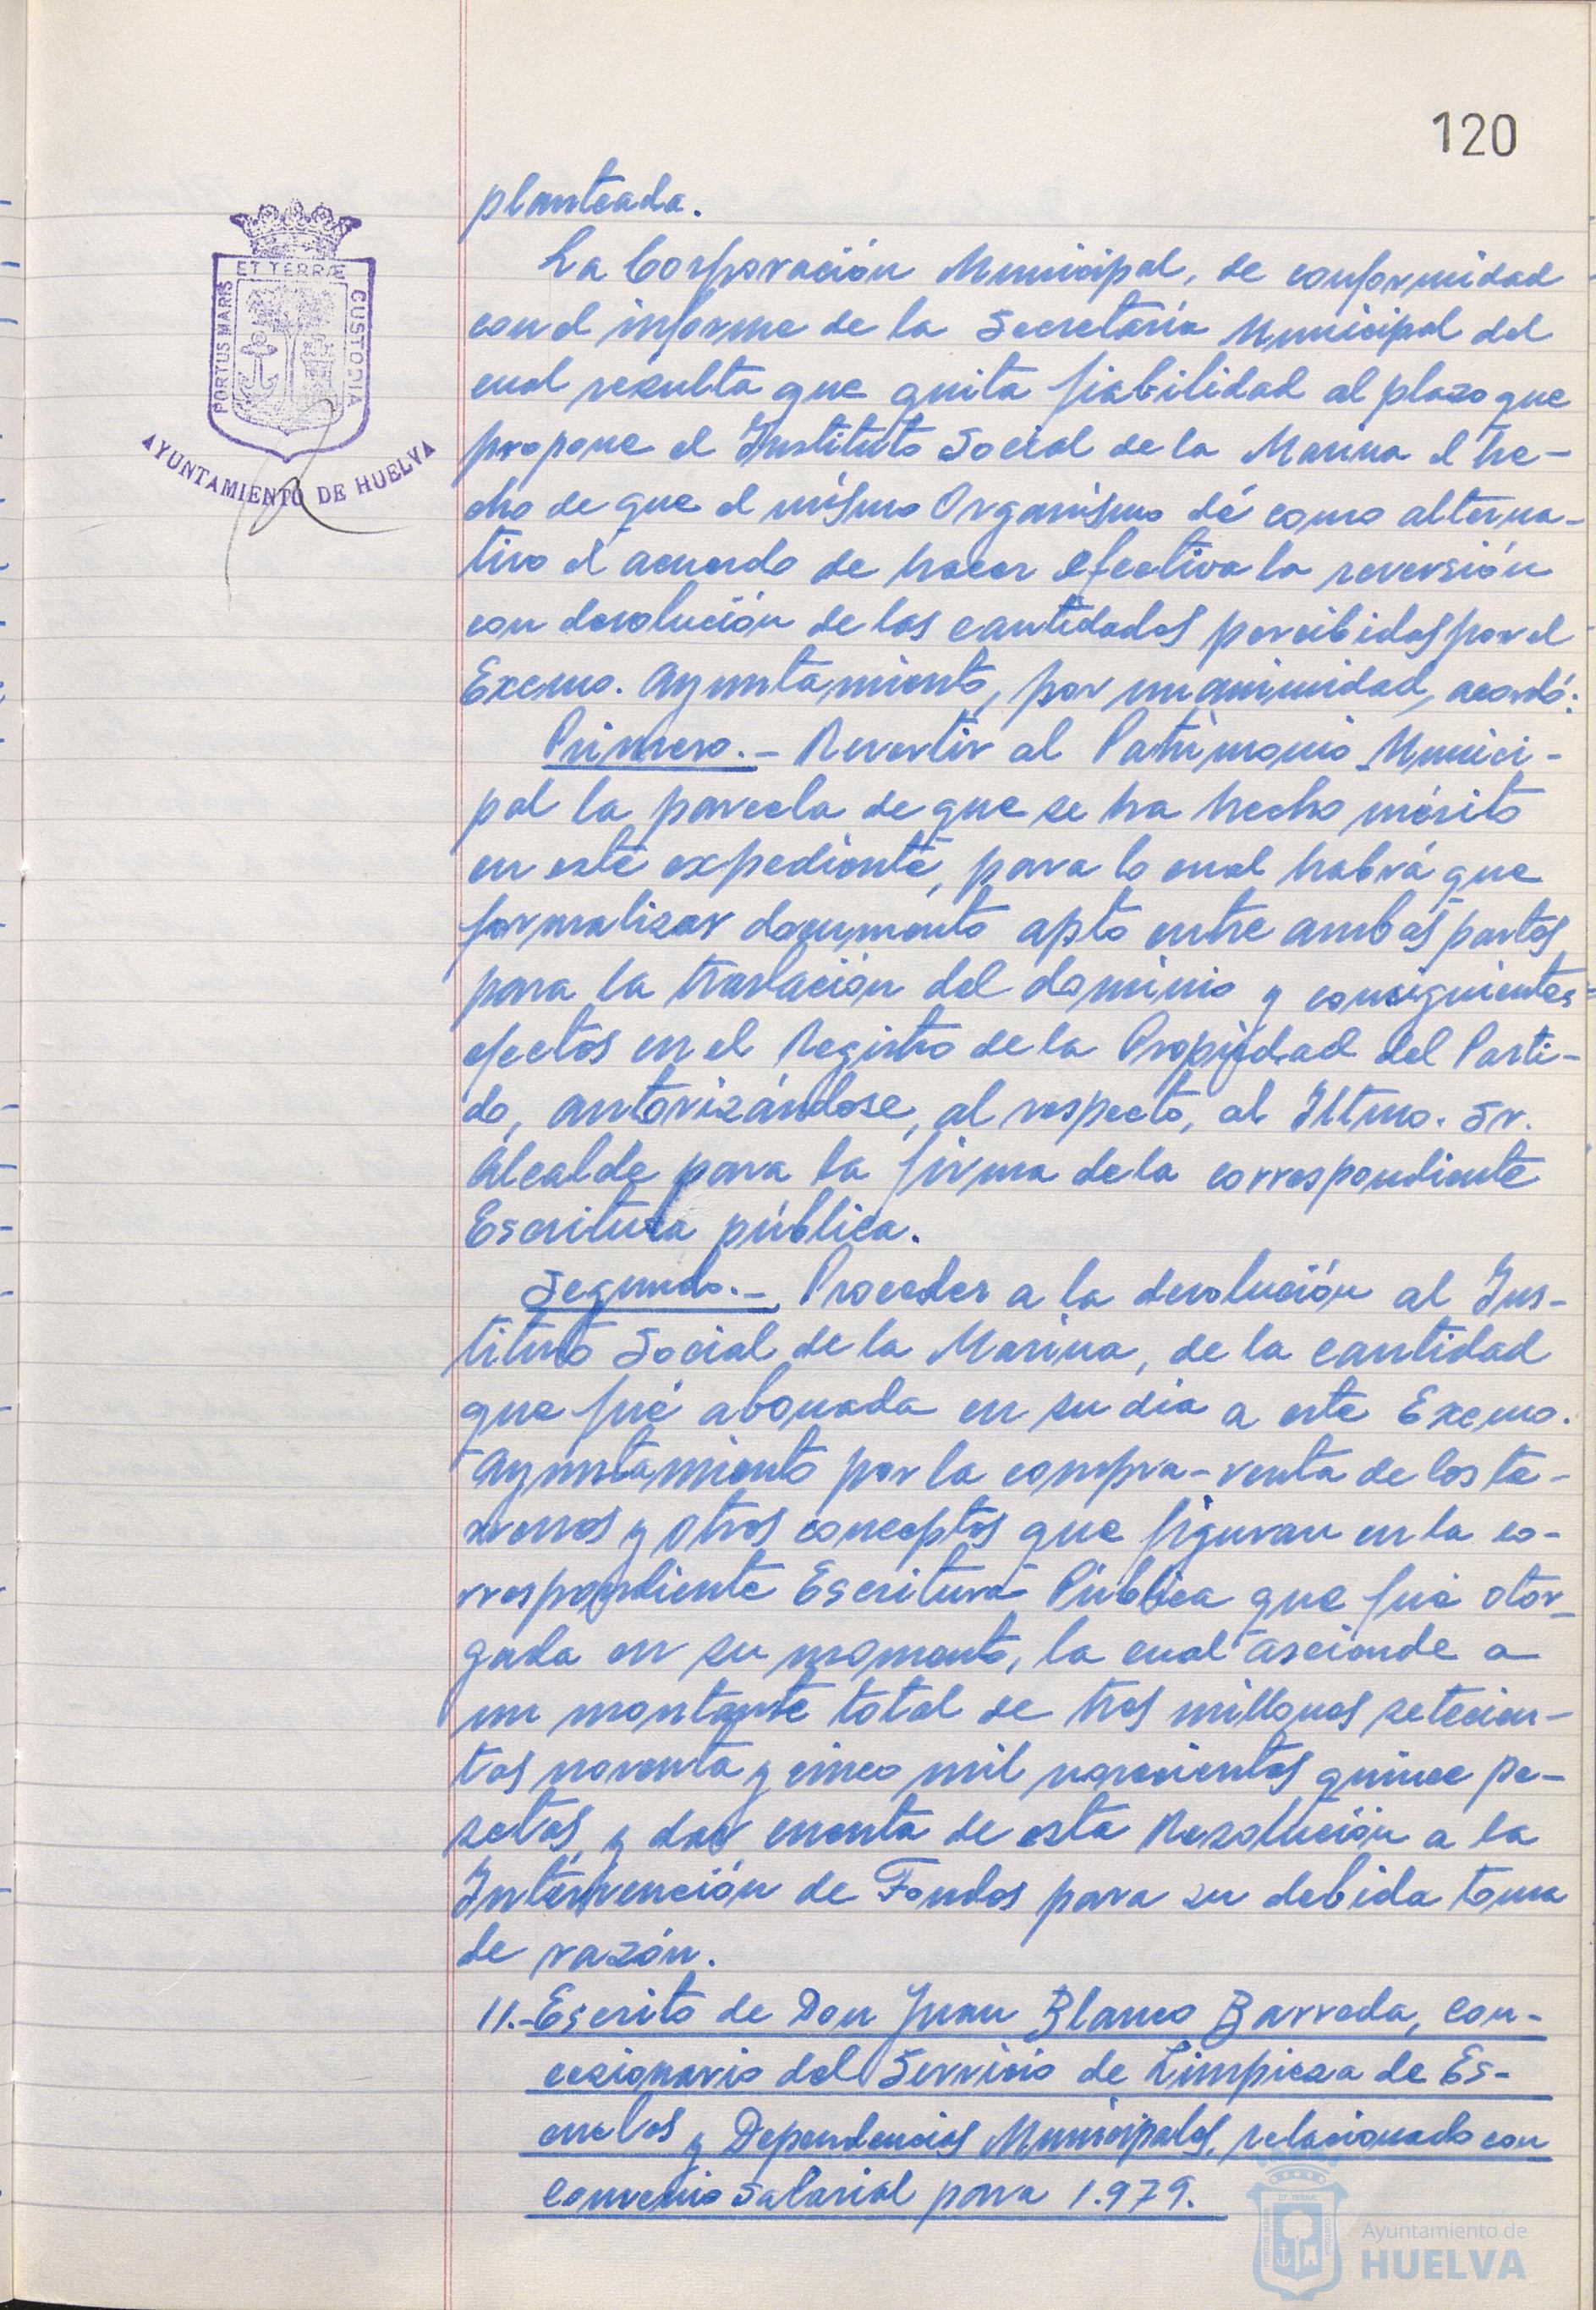 120
planteada.
La Corporación Municipal, de conformidad
con el informe de la Secretaría Municipal del
cual resulta que quita fiabilidad al plazo que
propone el Instituto Social de la Marina el he-
cho de que el mismo Organismo dé como alterna-
tivo el acuerdo de hacer efectiva la reversión
con devolución de las cantidades percibidas por el
Excmo. Ayuntamiento, por unanimidad, acordó:
Primero.- Revertir al Patrimonio Munici-
pal la parcela de que se ha hecho mérito
en este expediente, para lo cual habrá que
formalizar documento apto entre ambas partes
para la traslación del dominio y consiguientes
efectos en el Registro de la Propiedad del Parti-
do, autorizándose, al respecto, al Iltmo. Sr.
Alcalde para la firma de la correspondiente
Escritura pública.
Segundo.- Proceder a la devolución al Ins-
tituto Social de la Marina, de la cantidad
que fué abonada en su día a este Excmo.
Ayuntamiento por la compra-venta de los te-
rrenos y otros conceptos que figuran en la co-
rrespondiente Escritura Pública que fué otor-
gada en su momento, la cual asciende a
un montante total de tres millones setecien-
tas noventa y cinco mil novecientas quince pe-
setas, y dar cuenta de esta Resolución a la
Intervención de Fondos para su debida toma
de razón.
11.- Escrito de Don Juan Blanco Barreda, con-
cesionario del Servicio de Limpieza de Es-
cuelas y Dependencias Municipales, relacionado con
Convenio Salarial para 1.979.
PORTUS MARIS ET TERRÆ CUSTODIA
AYUNTAMIENTO DE HUELVA
Ayuntamiento de
HUELVA